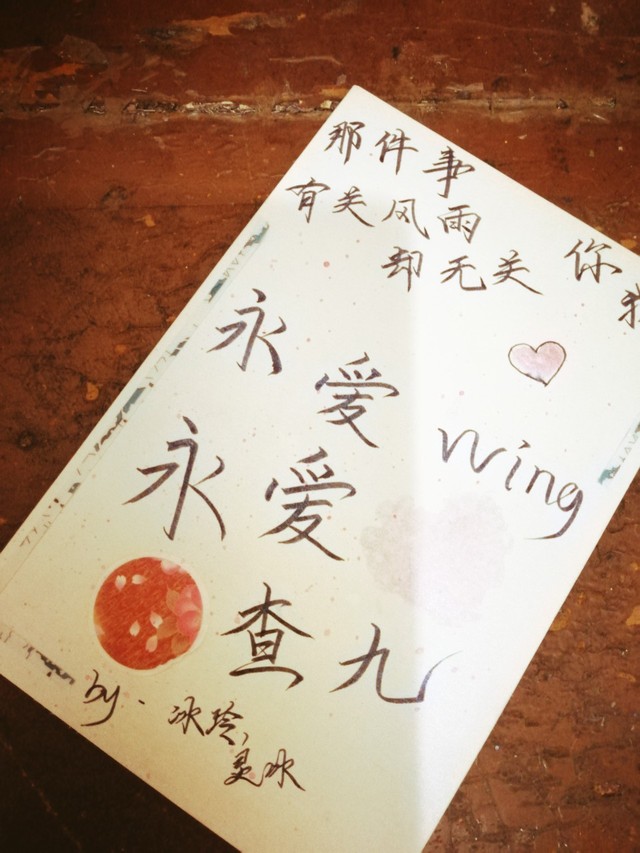 那件事
有关风雨
却无关 你我
永爱 Wing
永爱
查九
by·冰玲,
灵冰